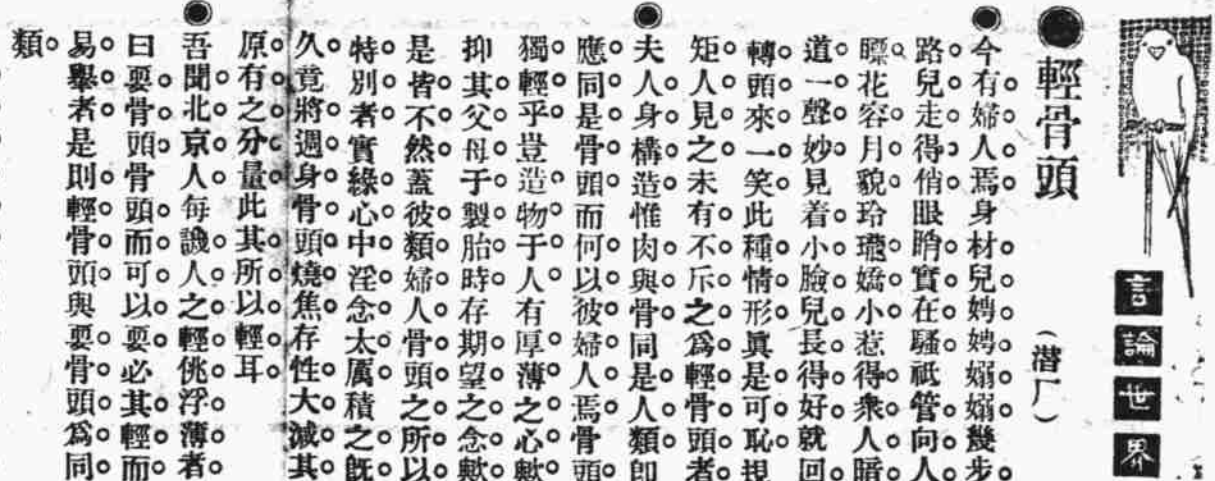 言論世界
輕骨頭
(潛厂)
今有婦人焉身材兒娉娉嫋嫋幾步
路兒走得俏眼睄實在騷祇管向人
瞟花容月貌玲瓏嬌小惹得衆人暗
道一聲妙見着小臉兒長得好就回
轉頭來一笑此種情形眞是可恥規
矩人見之未有不斥之爲輕骨頭者
夫人身構造惟肉與骨同是人類卽
應同是骨頭而何以彼婦人焉骨頭
獨輕乎豈造物于人有厚薄之心歟
抑其父母于製胎時存期望之念歟
是皆不然蓋彼類婦人骨頭之所以
特別者實緣心中淫念太厲積之旣
久竟將週身骨頭燒焦存性大減其
原有之分量此其所以輕耳
吾聞北京人每譏人之輕佻浮薄者
曰耍骨頭骨頭而可以耍必其輕而
易擧者是則輕骨頭與耍骨頭爲同
類